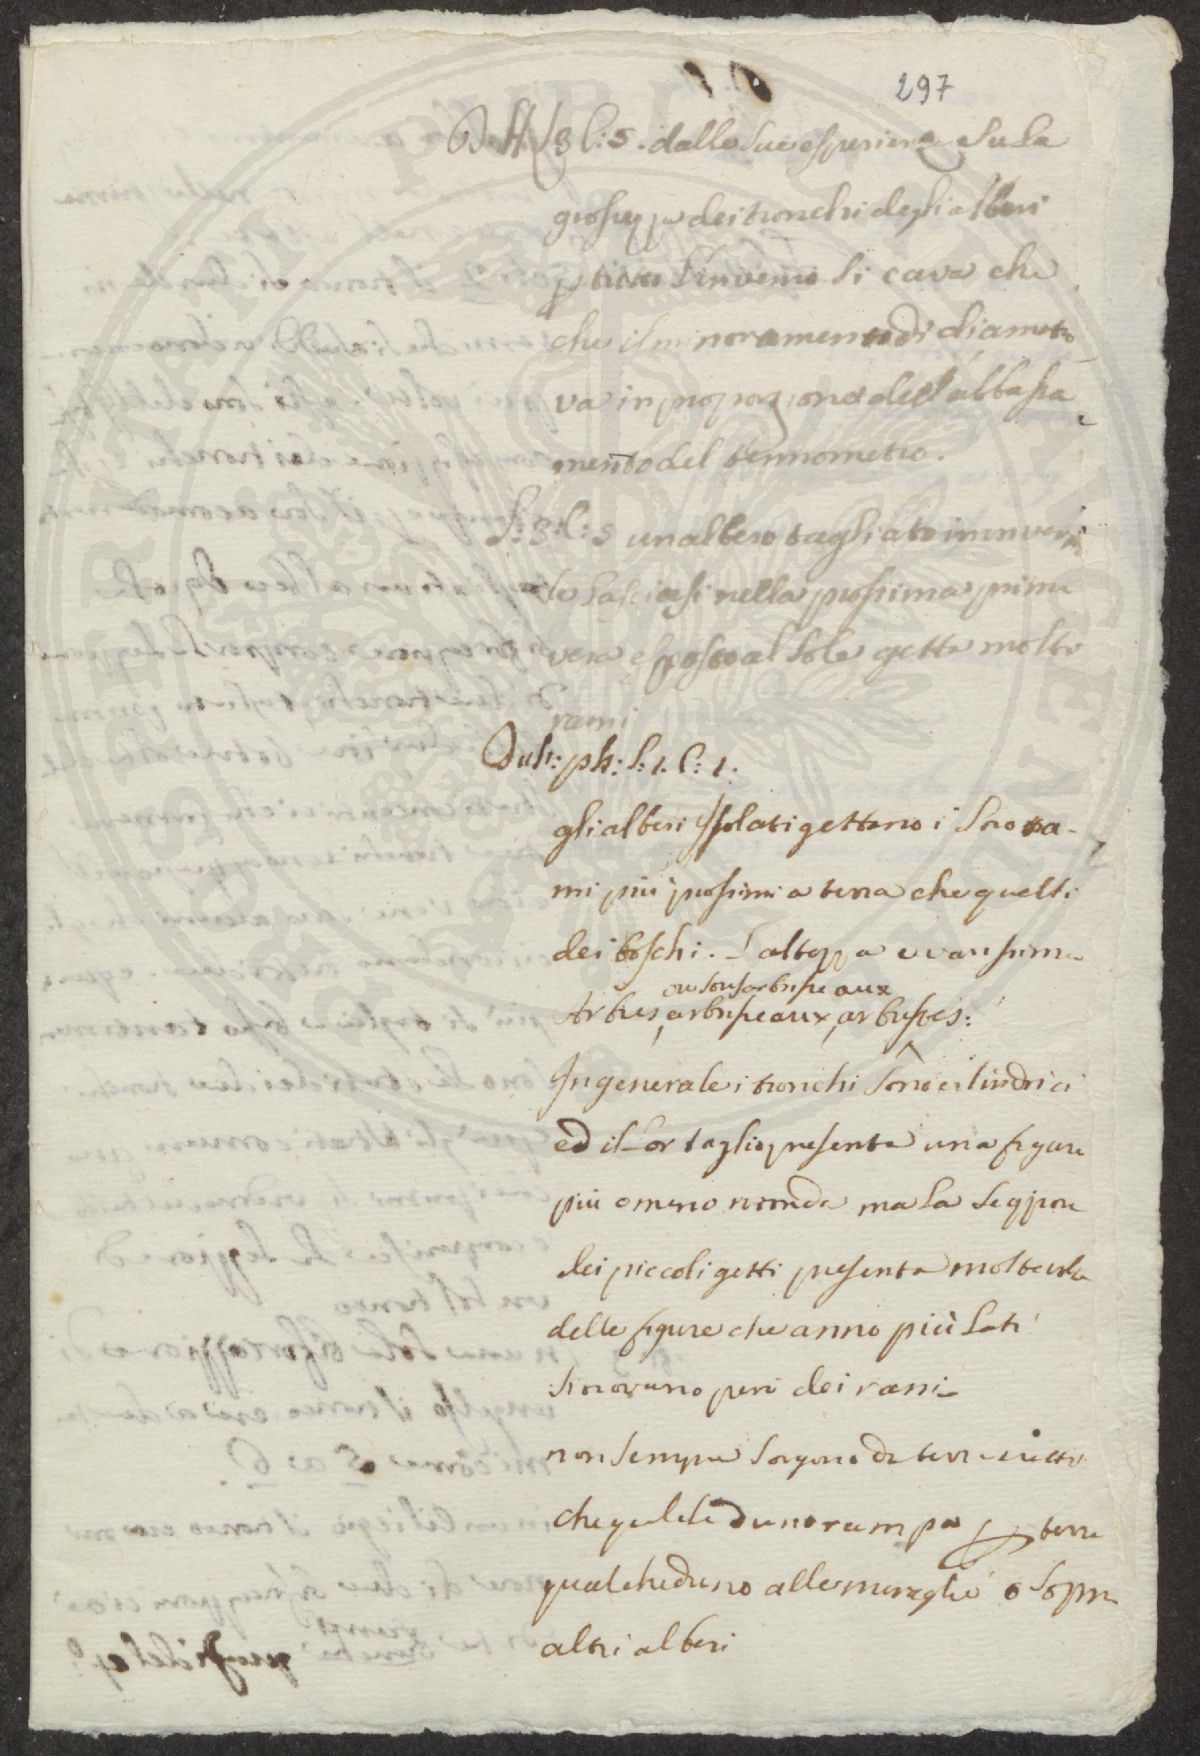 297
l: 5. dalle sue esperienze su la
grossezza dei tronchi degli alberi
tutto l'inverno si cava che
che il minoramento di diametro
va in proporzione dell'abbassa
mento del termometro.
l: 3: C: 5 un albero tagliato in inverno
se lasciasi nella prossima prima
vera esposto al sole getta molti
rami
Duh: ph: l: 1. C: 1.
gli alberi isolati gettano i loro ra-
mi più prossimi a terra che quelli
dei boschi. L'altezza
ou sousarbrisseaux
Arbres, arbrisseaux, arbustes:
In generale i tronchi sono cilindrici
ed il lor taglio presenta una figura
più o meno rotonda ma la sezione
dei piccoli getti presenta molte volte
delle figure che anno più lati
si trovano però dei rami
non sempre sorgono da terra
che terra
qualcheduno alle muraglie o sopra
altri alberi